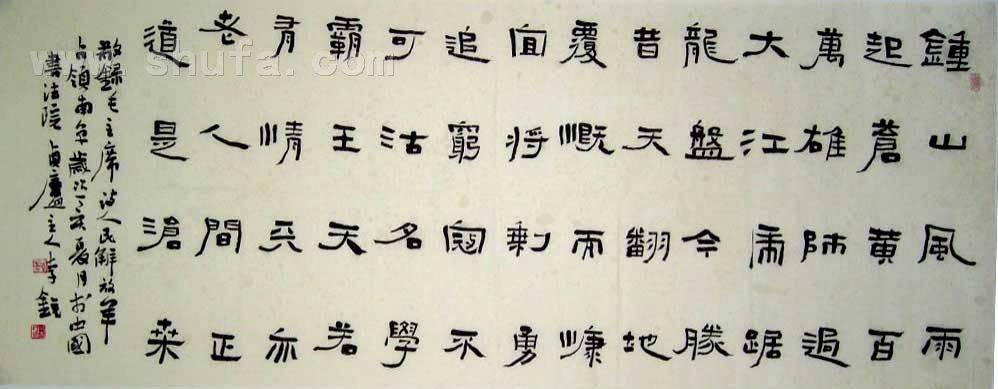 鍾山風雨
起蒼黃百
萬雄師過
大江虎踞
龍盤今勝
昔天翻地
覆慨而慷
宜將剩勇
追窮寇不
可沽名學
霸王天若
有情天亦
老人間正
道是滄桑
敬錄毛主席詩人民解放軍
占領南京歲次丁亥夏月於中國
書法院 主人李
shufa.com